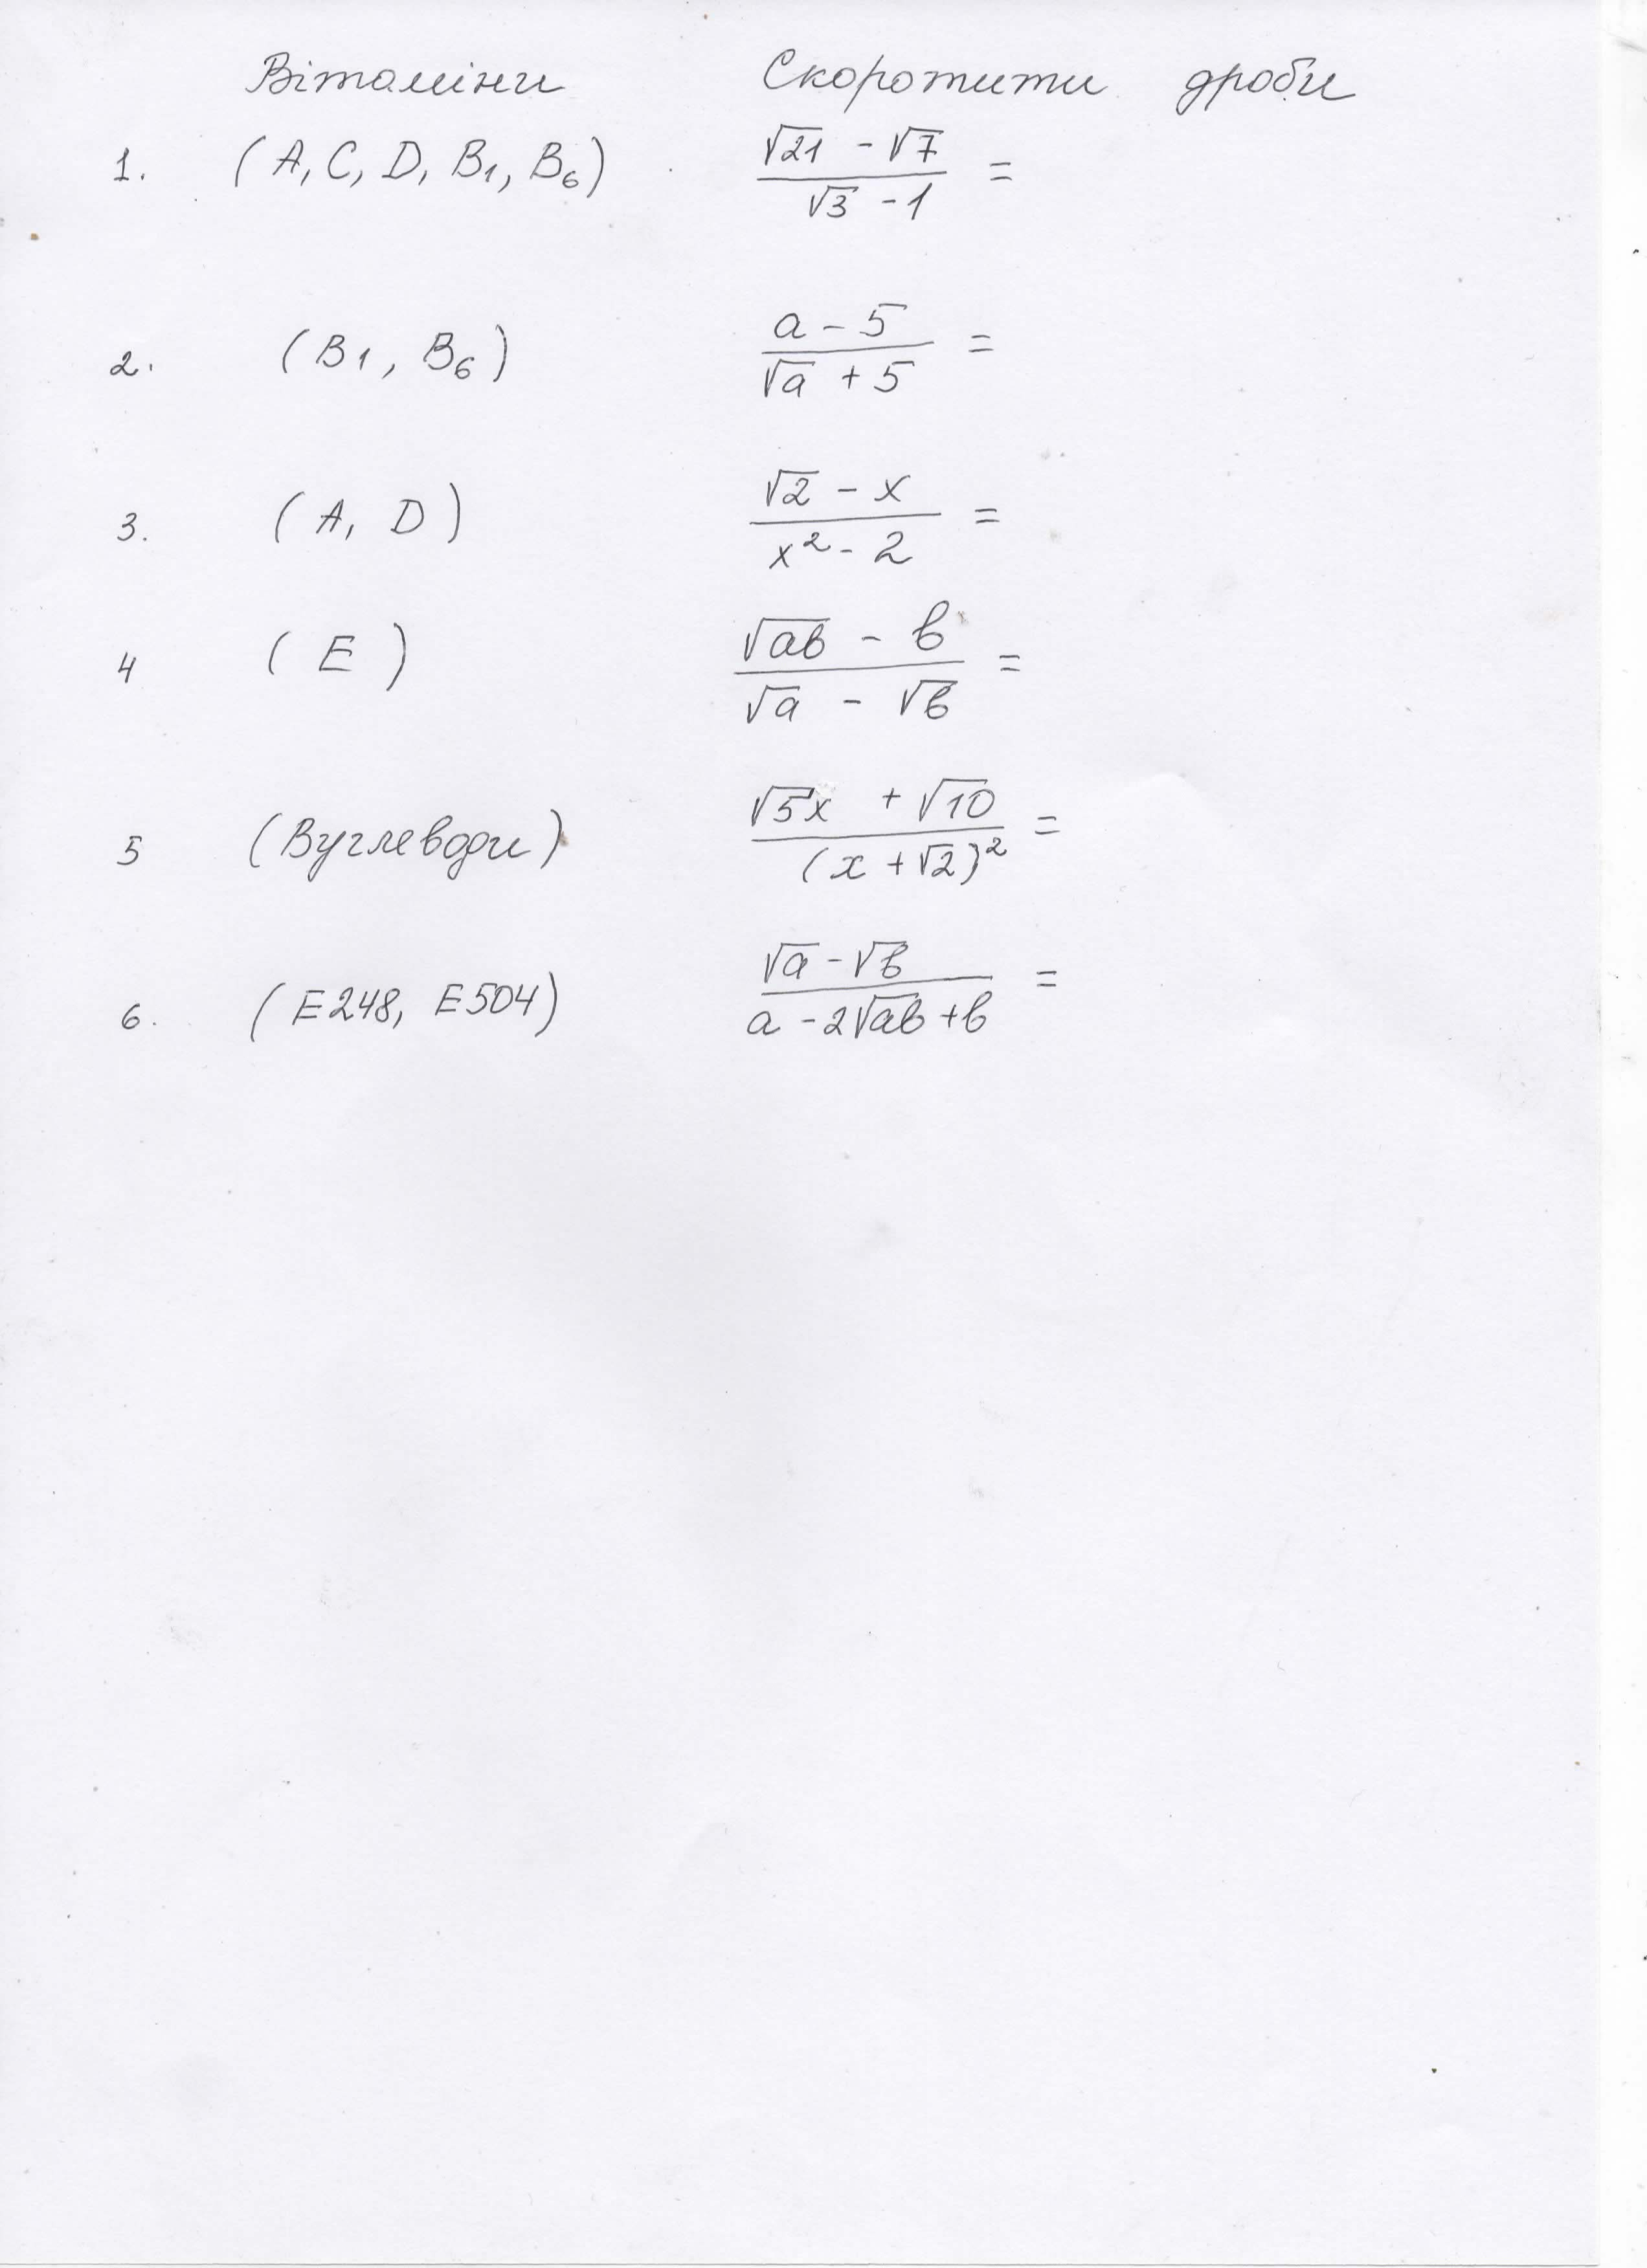 Вітаміни Скоротити дроби
1. (A, C, D, B₁, B₆) (√21 - √7)/(√3 - 1) =
2. (B1, B₆) (a - 5)/(√a + 5) =
3. (A, D) (√2 - x)/(x² - 2) =
4 (E) (√ab - b)/(√a - √b) =
5 (Вуглеводи) (√5x + √10)/((x + √2)²) =
6. (E248, E504) (√a - √b)/(a - 2√ab + b) =